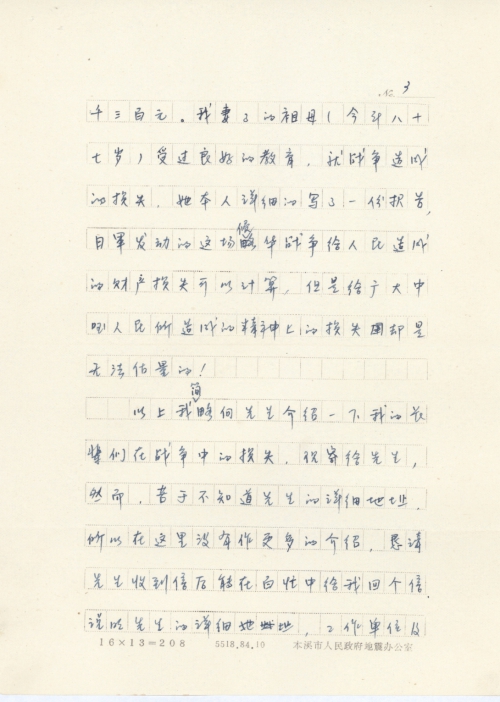 No. 3
千三百元。我妻子的祖母(今年八十
七岁)受过良好的教育,就战争造成
的损失,她本人详细的写了一份报告,
日军发动的这场侵略华战争给人民造成
的财产损失可以计算,但是给广大中
国人民所造成的精神上的损失困却是
无法估量的!
以上我简略向先生介绍一下我的长
辈们在战争中的损失,现寄给先生,
然而,苦于不知道先生的详细地址,
所以在这里没有作更多的介绍,恳请
先生收到信后能在百忙中给我回个信
说明先生的详细地址,工作单位及
16×13=208 5518.84.10 本溪市人民政府地震办公室